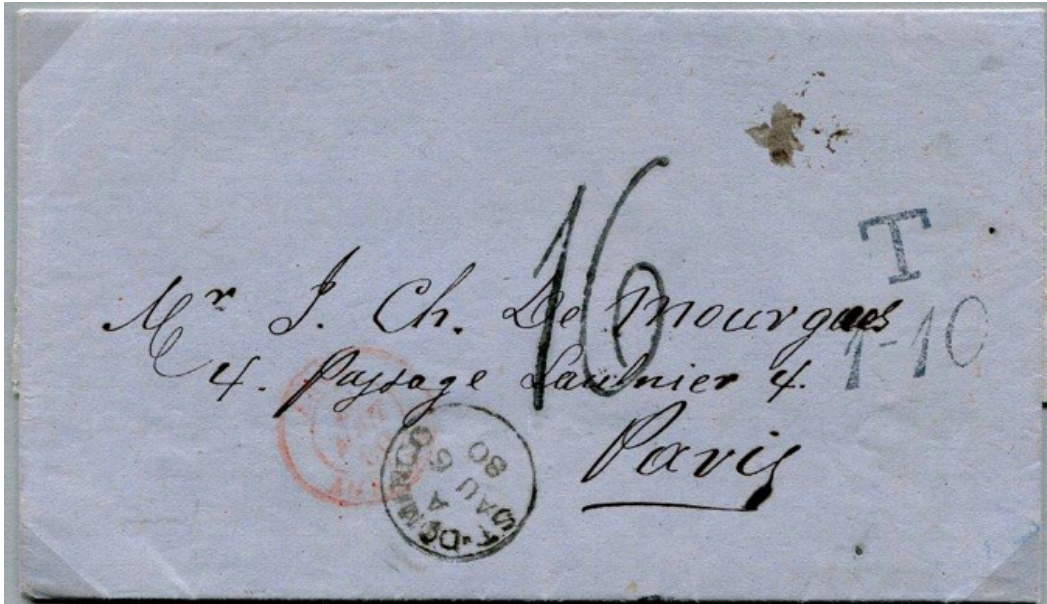 T
1-10
16
Mr J. Ch. De Mourgues
4. Passage Saulnier 4.
Paris
ST-DOMINGO
A
AU 6
80